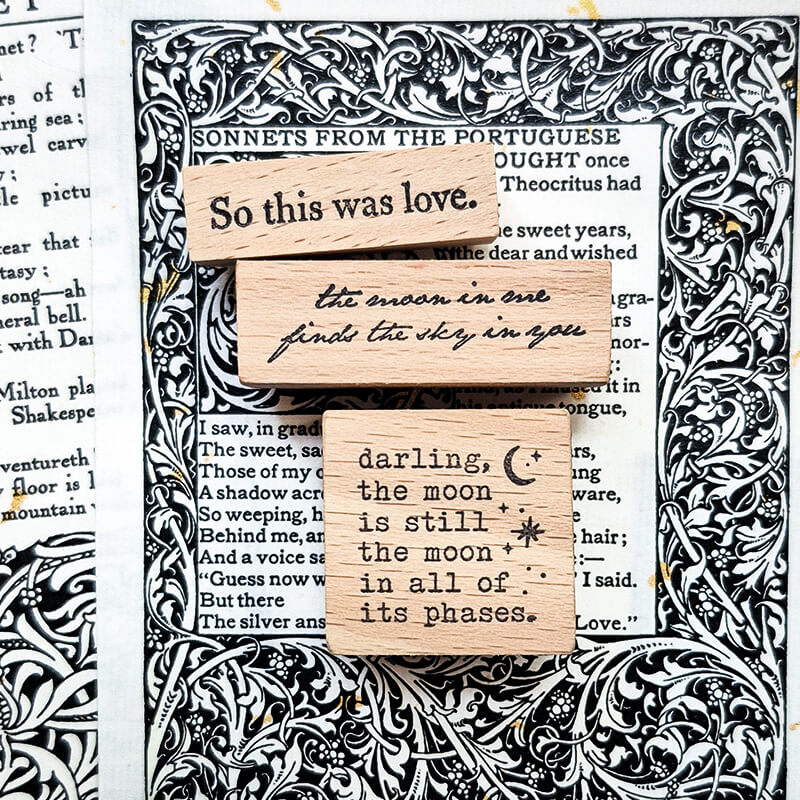 net? 'T
rs of t
ring sea;
wel carv
y;
le pictu
tear that
tasy;
song—ah
neral bell.
with Dar
Milton pla
Shakespe
ventureth
floor is
mountain
SONNETS FROM THE PORTUGUESE
OUGHT once
Theocritus had
sweet years,
the dear and wished
So this was love.
the moon in me
finds the sky in you
gra-
nor-
in
antique tongue,
I saw, in grad
The sweet, sa
Those of my
A shadow acr
ware,
So weeping, h
Behind me, an
hair;
And a voice sa
:—
"Guess now w
' I said.
But there
The silver ans
Love."
darling,
the moon
is still
the moon
in all of
its phases.